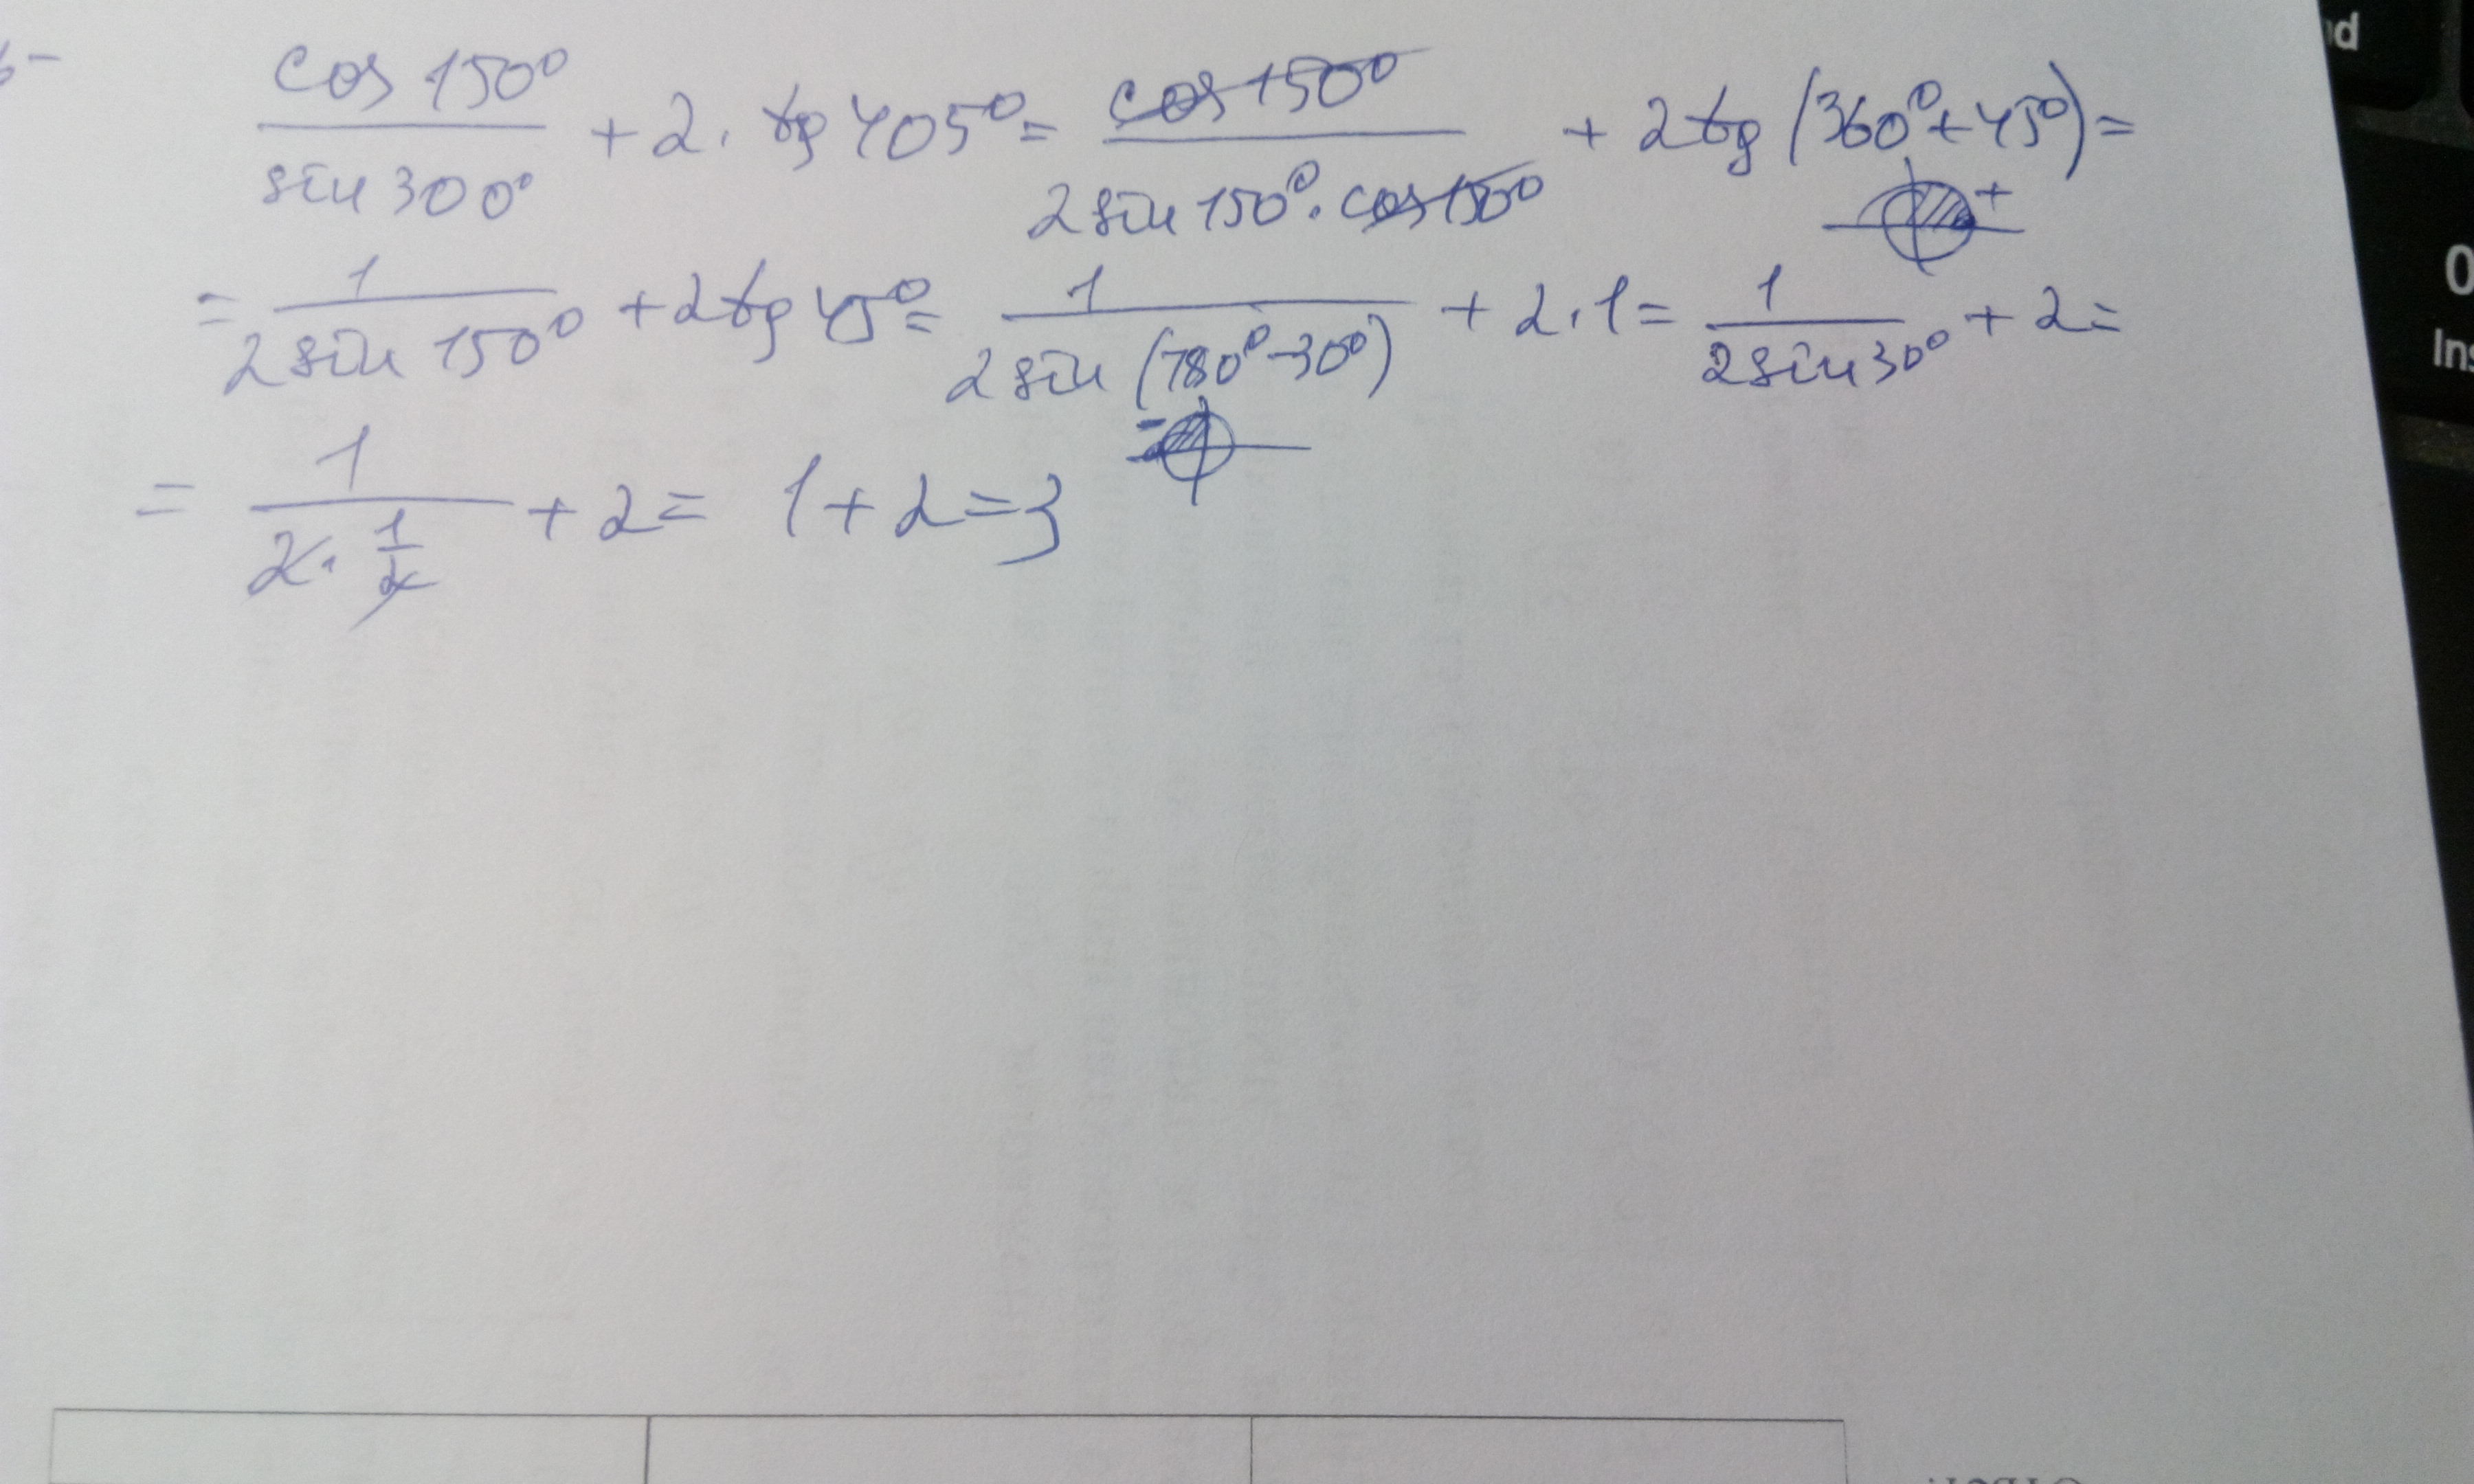 cos 150° / sin 300° + 2 · tg 405° = cos 150° / 2 sin 150° · cos 150° + 2 tg (360° + 45°) =
= 1 / 2 sin 150° + 2 tg 45° = 1 / 2 sin (180° - 30°) + 2 · 1 = 1 / 2 sin 30° + 2 =
= 1 / 2 · 1/2 + 2 = 1 + 2 = 3
0
Ins